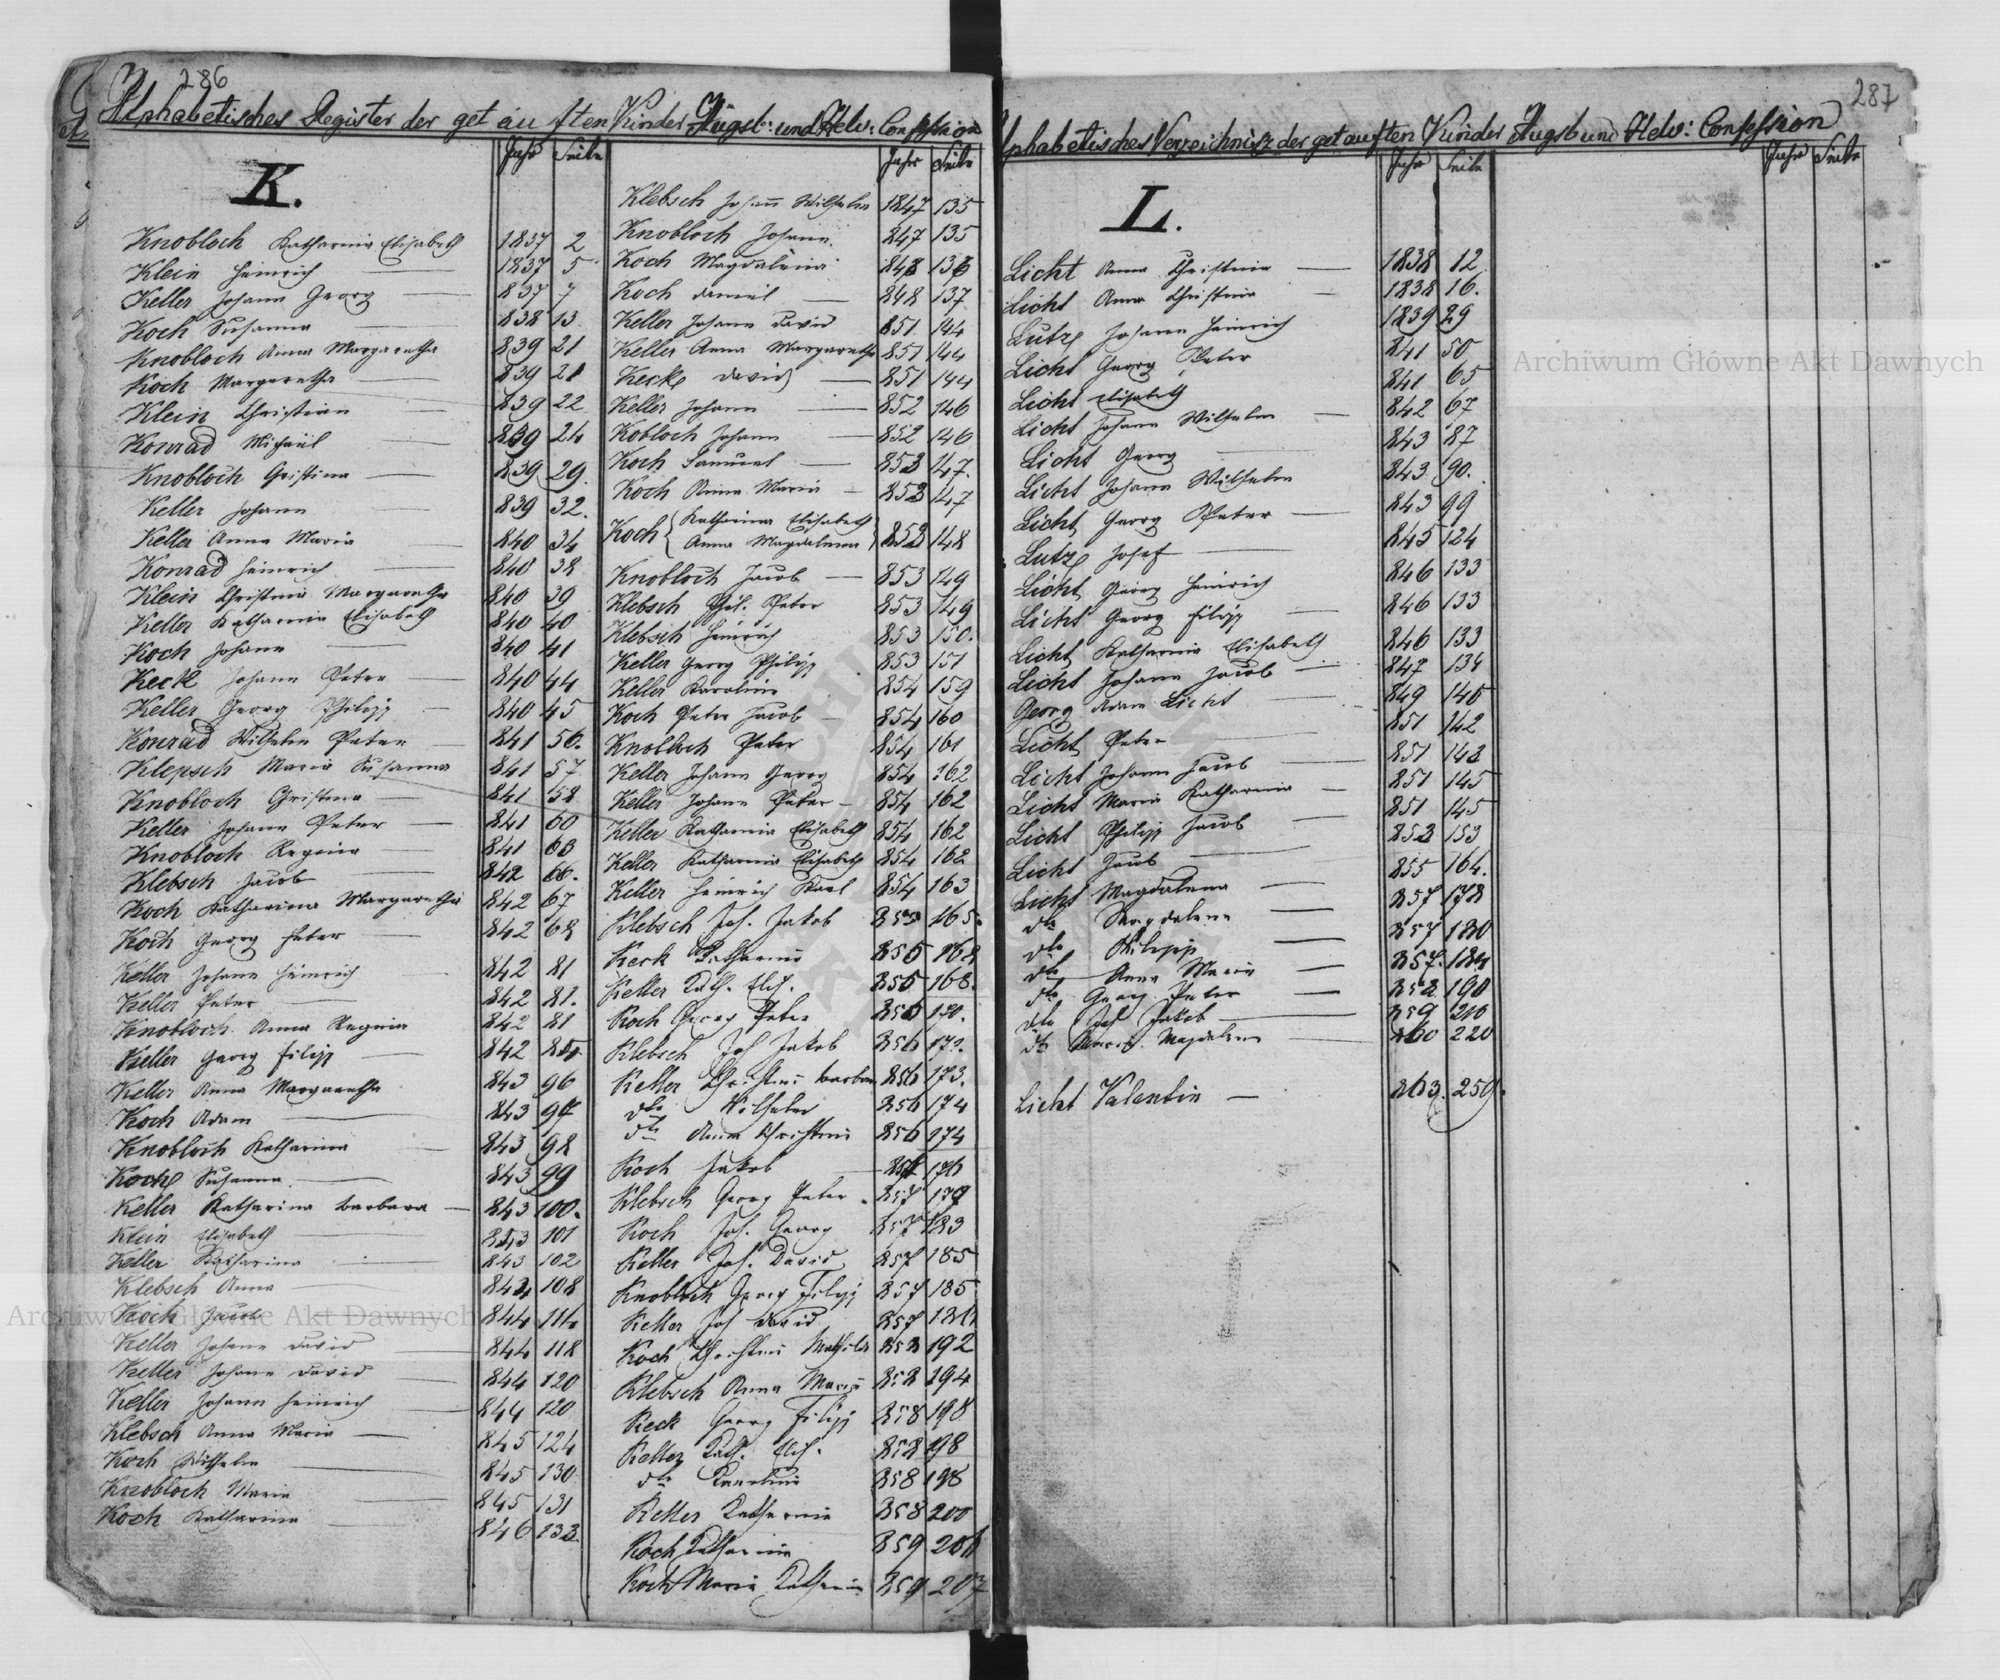 286
Alphabetisches Register der getauften Kinder Augsb: und Helv: Confession
Jahr Seite
K.
Knobloch Katharina Elisabeth 1837 2
Klein Heinrich 1837 5
Keller Johann Georg 837 7
Koch Susanna 838 13
Knobloch Anna Margaretha 839 21
Koch Margaretha 839 21
Klein Christian 839 22
Konrad Michael 839 24
Knobloch Gristina 839 29
Keller Johann 839 32.
Keller Anna Maria 840 34
Konrad Heinrich 840 38
Klein Christina Margaretha 840 39
Keller Katharina Elisabeth 840 40
Koch Johann 840 41
Keck Johann Peter 840 44
Keller Georg Philipp 840 45
Konrad Wilhelm Peter 841 56.
Klepsch Maria Susanna 841 57
Knobloch Gristina 841 58
Keller Johann Peter 841 60
Knobloch Regina 841 63
Klebsch Jacob 842 66.
Koch Katharina Margaretha 842 67
Koch Georg Peter 842 68
Keller Johann Heinrich 842 81
Keller Peter 842 81.
Knobloch Anna Regina 842 81
Keller Georg Filipp 842 85.
Keller Anna Margaretha 843 96
Koch Adam 843 97
Knobloch Katharina 843 98
Koch Susanna 843 99
Keller Katharina Barbara 843 100.
Klein Elisabeth 843 101
Keller Katharina 843 102
Klebsch Anna 843 108
Koch Jacob 844 114
Keller Johann David 844 118
Keller Johann David 844 120
Keller Johann Heinrich 844 120
Klebsch Anna Maria 845 124
Koch Wilhelm 845 130
Knobloch Maria 845 131
Koch Katharina 846 133.
Jahr Seite
Klebsch Johann Wilhelm 1847 135
Knobloch Johann 847 135
Koch Magdalena 848 136
Koch Daniel 848 137
Keller Johann David 851 144
Keller Anna Margaretha 851 144
Keck David 851 144
Keller Johann 852 146
Kobloch Johann 852 146
Koch Samuel 853 147.
Koch Anna Maria 853 147
Koch { Katharina Elisabeth
Anna Magdalena } 853 148
Knobloch Jacob 853 149
Klebsch Phil. Peter 853 149
Klebsch Heinrich 853 150.
Keller Georg Philipp 853 151
Keller Karolina 854 159
Koch Peter Jacob 854 160
Knobloch Peter 854 161
Keller Johann Georg 854 162
Keller Johann Peter 854 162
Keller Katharina Elisabeth 854 162
Keller Katharina Elisabeth 854 162
Keller Heinrich Karl 854 163
Klebsch Joh. Jakob 855 165.
Keck Katharina 855 168
Keller Kath. Elis. 855 168.
Koch Georg Peter 856 170.
Klebsch Joh Jakob 856 172.
Keller Christina Barbara 856 173.
dto Wilhelm 856 174
dto Anna Christina 856 174
Koch Jakob 856 176
Klebsch Georg Peter 857 179
Koch Joh. Georg 857 183
Keller Joh. David 857 185
Knobloch Georg Filipp 857 185
Keller Joh David 857
Koch Christina Mathilde 858 192
Klebsch Anna Maria 858 194
Keck Georg Filipp 858 198
Keller Kath. Elis. 858 198
dto Karolina 858 198
Keller Katharina 858 200
Koch Katharina 859 206
Koch Maria Katharina 859 207
287
Alphabetisches Verzeichnisz der getauften Kinder Augsb und Helv: Confession
Jahr Seite
Jahr Seite
L.
Licht Anna Christina 1838 12
Licht Anna Christina 1838 16.
Lutz Johann Heinrich 1839 29
Licht Georg Peter 841 50
Licht Elisabeth 841 65
Licht Johann Wilhelm 842 67
Licht Georg 843 87
Licht Johann Wilhelm 843 90.
Licht Georg Peter 843 99
Lutz Josef 845 124
Licht Georg Heinrich 846 133
Licht Georg Filipp 846 133
Licht Katharina Elisabeth 846 133
Licht Johann Jacob 847 134
Georg Adam Licht 849 140
Licht Peter 851 142
Licht Johann Jacob 851 143
Licht Maria Katharina 851 145
Licht Philipp Jacob 851 145
Licht Jacob 853 153
Licht Magdalena 855 164.
dto Magdalena 857 178
dto Filipp 857 180
dto Anna Maria 857. 184
dto Georg Peter 858 190
dto Joh Jakob 859 210
dto Maria Magdalena 860 220
Licht Valentin 863. 259.
Archiwum Główne Akt Dawnych
Archiwum Główne Akt Dawnych